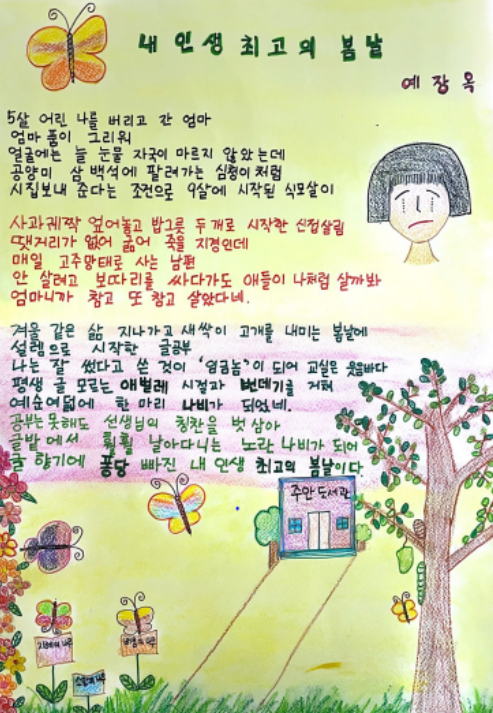 내 인생 최고의 봄날
예 장 옥
5살 어린 나를 버리고 간 엄마
엄마 품이 그리워
얼굴에는 늘 눈물 자국이 마르지 않았는데
공양미 삼 백석에 팔려가는 심청이처럼
시집보내 준다는 조건으로 9살에 시작된 식모살이
사과궤짝 엎어놓고 밥그릇 두개로 시작한 신접살림
땟거리가 없어 굶어 죽을 지경인데
매일 고주망태로 사는 남편
안 살려고 보따리를 싸다가도 애들이 나처럼 살까봐
엄마니까 참고 또 참고 살았다네.
겨울 같은 삶 지나가고 새싹이 고개를 내미는 봄날에
설렘으로 시작한 글공부
나는 잘 썼다고 쓴 것이 '엄금놈'이 되어 교실은 웃음바다
평생 글 모르는 애벌레 시절과 번데기를 거쳐
예순여덟에 한 마리 나비가 되었네.
공부는못해도 선생님의 칭찬을 벗 삼아
글밭에서 훨훨 날아다니는 노란 나비가 되어
글 향기에 퐁당 빠진 내 인생 최고의 봄날이다
주안도서관